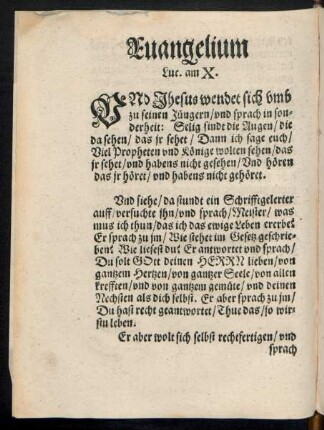 Euangelium
Luc. am X.
VNd Jhesus wendet sich vmb
zu seinen Jüngern/vnd sprach in son-
derheit: Selig sindt die Augen/die
da sehen/das jr sehet/Dann ich sage euch/
Viel Propheten vnd Könige wolten sehen/das
jr sehet/vnd habens nicht gesehen/Vnd hören
das jr höret/vnd habens nicht gehöret.
Vnd siehe/da stundt ein Schrifftgelerter
auff/versuchte jhn/vnd sprach/Meister/was
mus ich thun/das ich das ewige Leben ererbe?
Er sprach zu jm/Wie stehet im Gesetz geschrie-
ben? Wie liesest du? Er antwortet vnd sprach/
Du solt GOtt deinen HERRN lieben/von
gantzem Hertzen/von gantzer Seele/von allen
krefften/vnd von gantzem gemüte/vnd deinen
Nechsten als dich selbst. Er aber sprach zu jm/
Du hast recht geantwortet/Thue das/so wir-
stu leben.
Er aber wolt sich selbst rechtfertigen/vnd
sprach